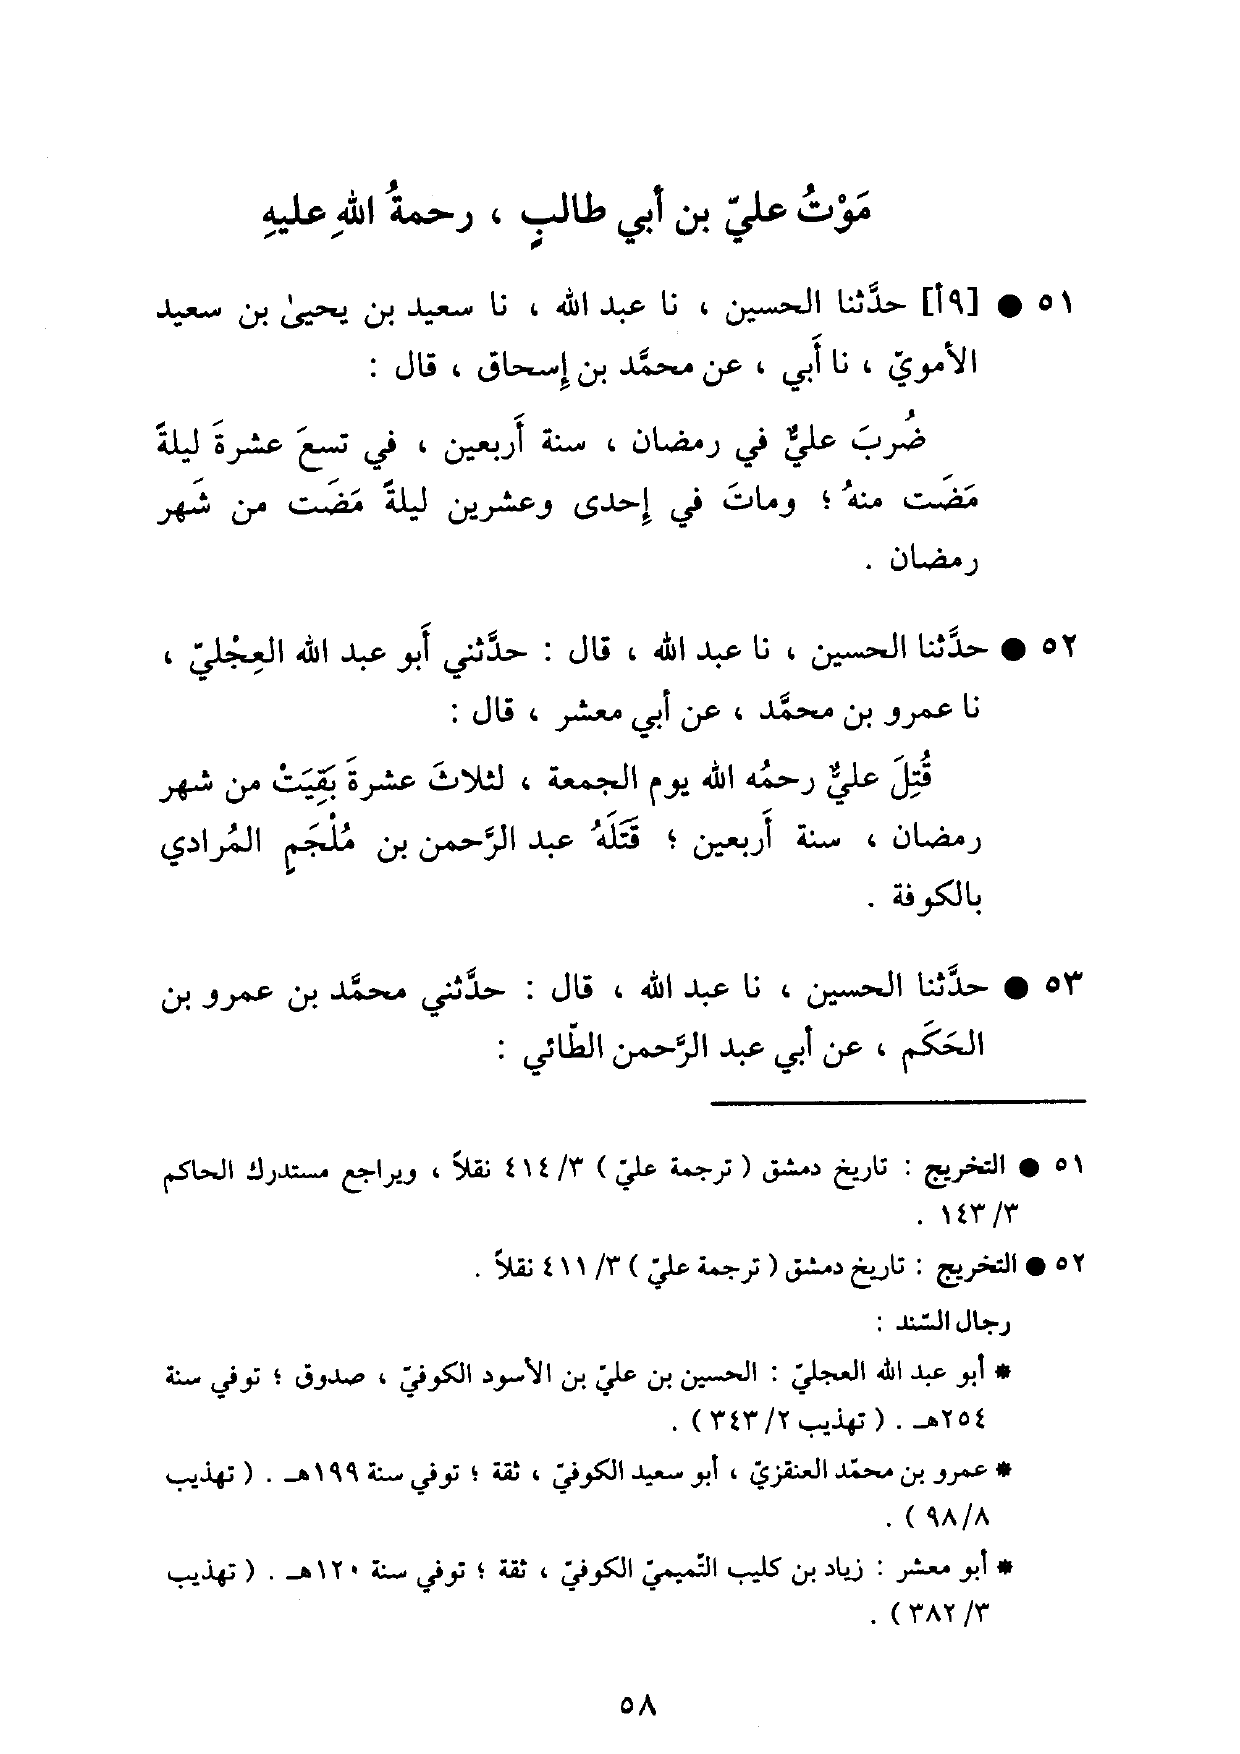 مَوْتُ عليّ بن أبي طالبٍ ، رحمةُ اللهِ عليهِ
٥١ ● [٩أ] حدَّثنا الحسين ، نا عبد الله ، نا سعيد بن يحيىٰ بن سعيد
الأمويّ ، نا أَبي ، عن محمَّد بن إسحاق ، قال :
ضُربَ عليٌّ في رمضان ، سنة أَربعين ، في تسعَ عشرةَ ليلةً
مَضَت منهُ ؛ وماتَ في إحدى وعشرين ليلةً مَضَت من شَهر
رمضان .
٥٢ ● حدَّثنا الحسين ، نا عبد الله ، قال : حدَّثني أَبو عبد الله العِجْليّ ،
نا عمرو بن محمَّد ، عن أبي معشر ، قال :
قُتِلَ عليٌّ رحمُه الله يوم الجمعة ، لثلاثَ عشرةَ بَقِيَتْ من شهر
رمضان ، سنة أَربعين ؛ قَتَلَهُ عبد الرَّحمن بن مُلْجَمٍ المُرادي
بالكوفة .
٥٣ ● حدَّثنا الحسين ، نا عبد الله ، قال : حدَّثني محمَّد بن عمرو بن
الحَكَم ، عن أبي عبد الرَّحمن الطّائي :
٥١ ● التخريج : تاريخ دمشق ( ترجمة عليّ ) ٣/ ٤١٤ نقلاً ، ويراجع مستدرك الحاكم
٣/ ١٤٣ .
٥٢ ● التخريج : تاريخ دمشق ( ترجمة عليّ ) ٣/ ٤١١ نقلاً .
رجال السّند :
* أبو عبد الله العجليّ : الحسين بن عليّ بن الأسود الكوفيّ ، صدوق ؛ توفي سنة
٢٥٤هـ . ( تهذيب ٢/ ٣٤٣ ) .
* عمرو بن محمّد العنقزيّ ، أبو سعيد الكوفيّ ، ثقة ؛ توفي سنة ١٩٩هـ . ( تهذيب
٨/ ٩٨ ) .
* أبو معشر : زياد بن كليب التّميميّ الكوفيّ ، ثقة ؛ توفي سنة ١٢٠هـ . ( تهذيب
٣/ ٣٨٢ ) .
٥٨